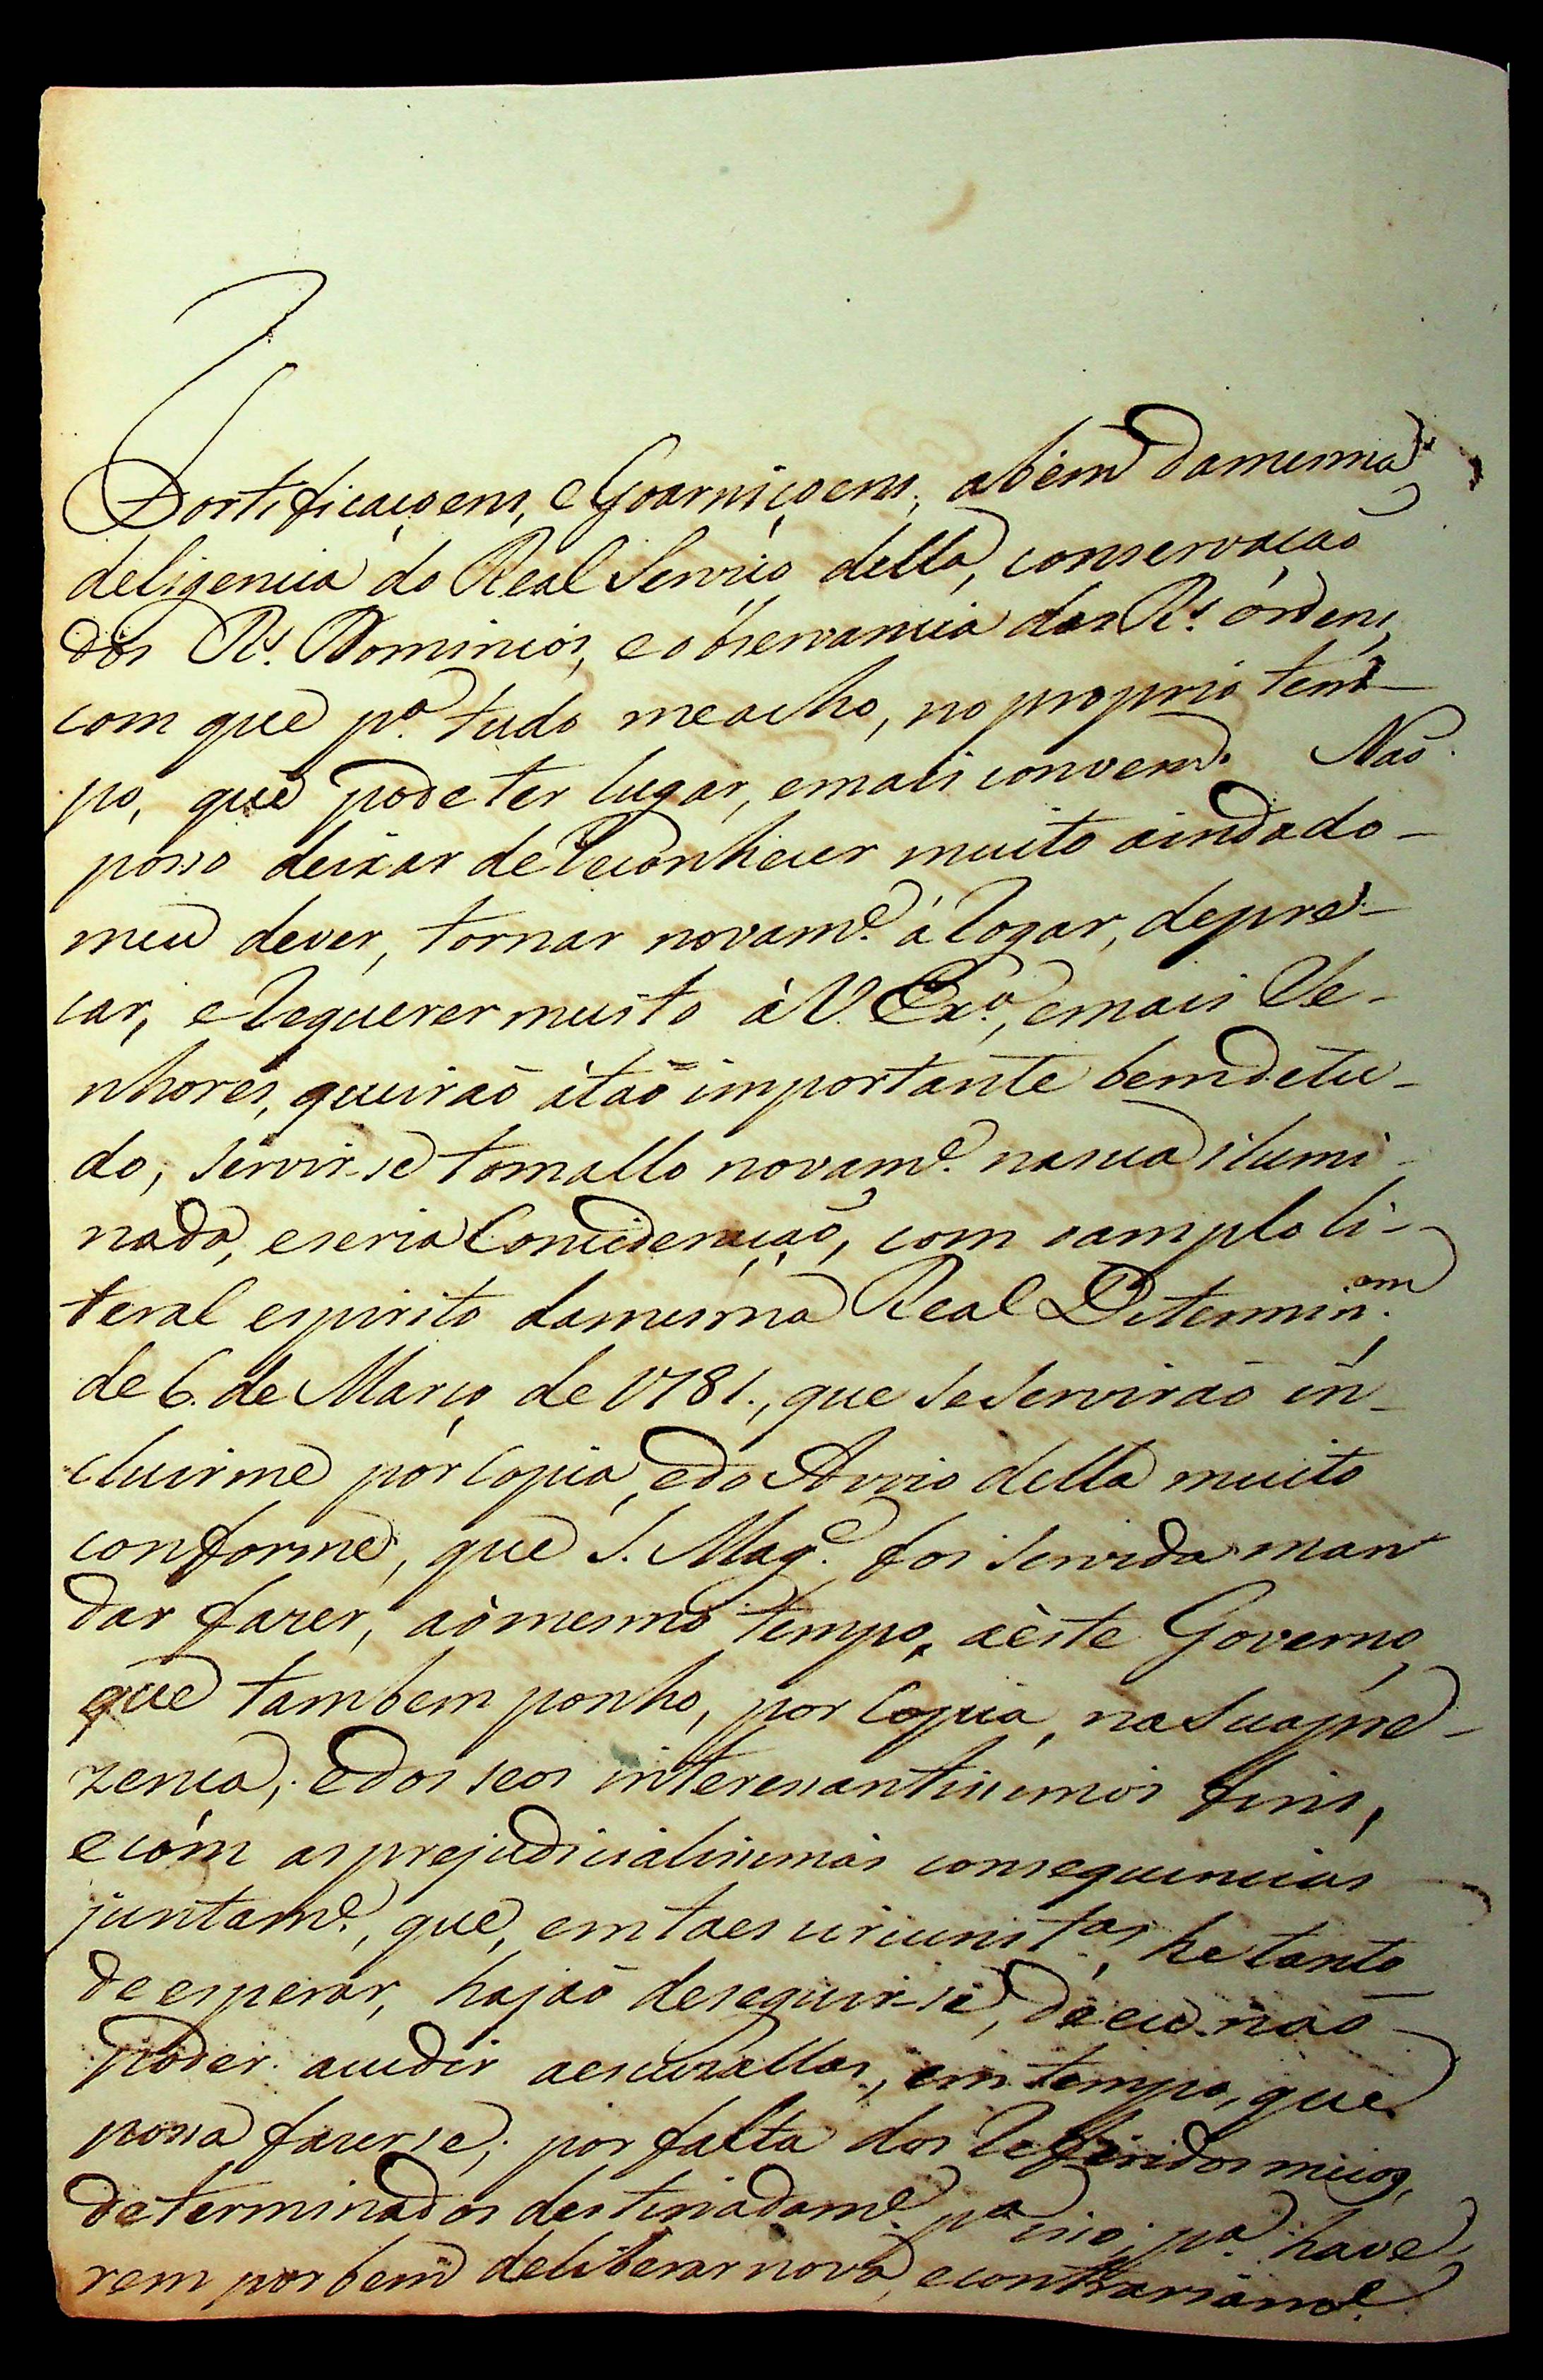 Fortificaçoens, e Goarniçoens, abem damesma
deligencia do Real Serviço della, conservação
dos R.s Dominios, e observancia das R.s ordens,
com que p.a tudo meacho, no proprio tem-
po, que pode ter lugar, emais convem. Não
posso deixar de Reconhecer muito aindado-
meu dever, tornar novam.e á Rogar, depre-
car, e Requerer muito à V. Ex.a, emais Se-
nhores, queirão átão importante bem detu-
do, servir-se tomallo novam.e nasua ilumi-
nada, eseria Concideração, com oamplo li-
teral espirito damesma Real Determin.am
de 6. de Março de 1781., que seservirão in-
cluirme por Copia, edo Avizo della muito
conforme, que S. Mag.e foi servida man
dar fazer, aómesmo tempo, aéste Governo,
que tambem ponho, por Copia, naSuapre-
zença; edos seos interessantissimos fins,
ecom asprejudicialissimas consequencias
juntam.e, que, emtaes circunst.as, hetanto
deesperar, hajão deseguir-se, deeu não
poder acudir aescuzallas, em tempo, que
possa fazerse; por falta dos Referidos meios,
determinados destinadam.e p.a isso; p.a have
rem por bem deliberar nova, econtrariam.e